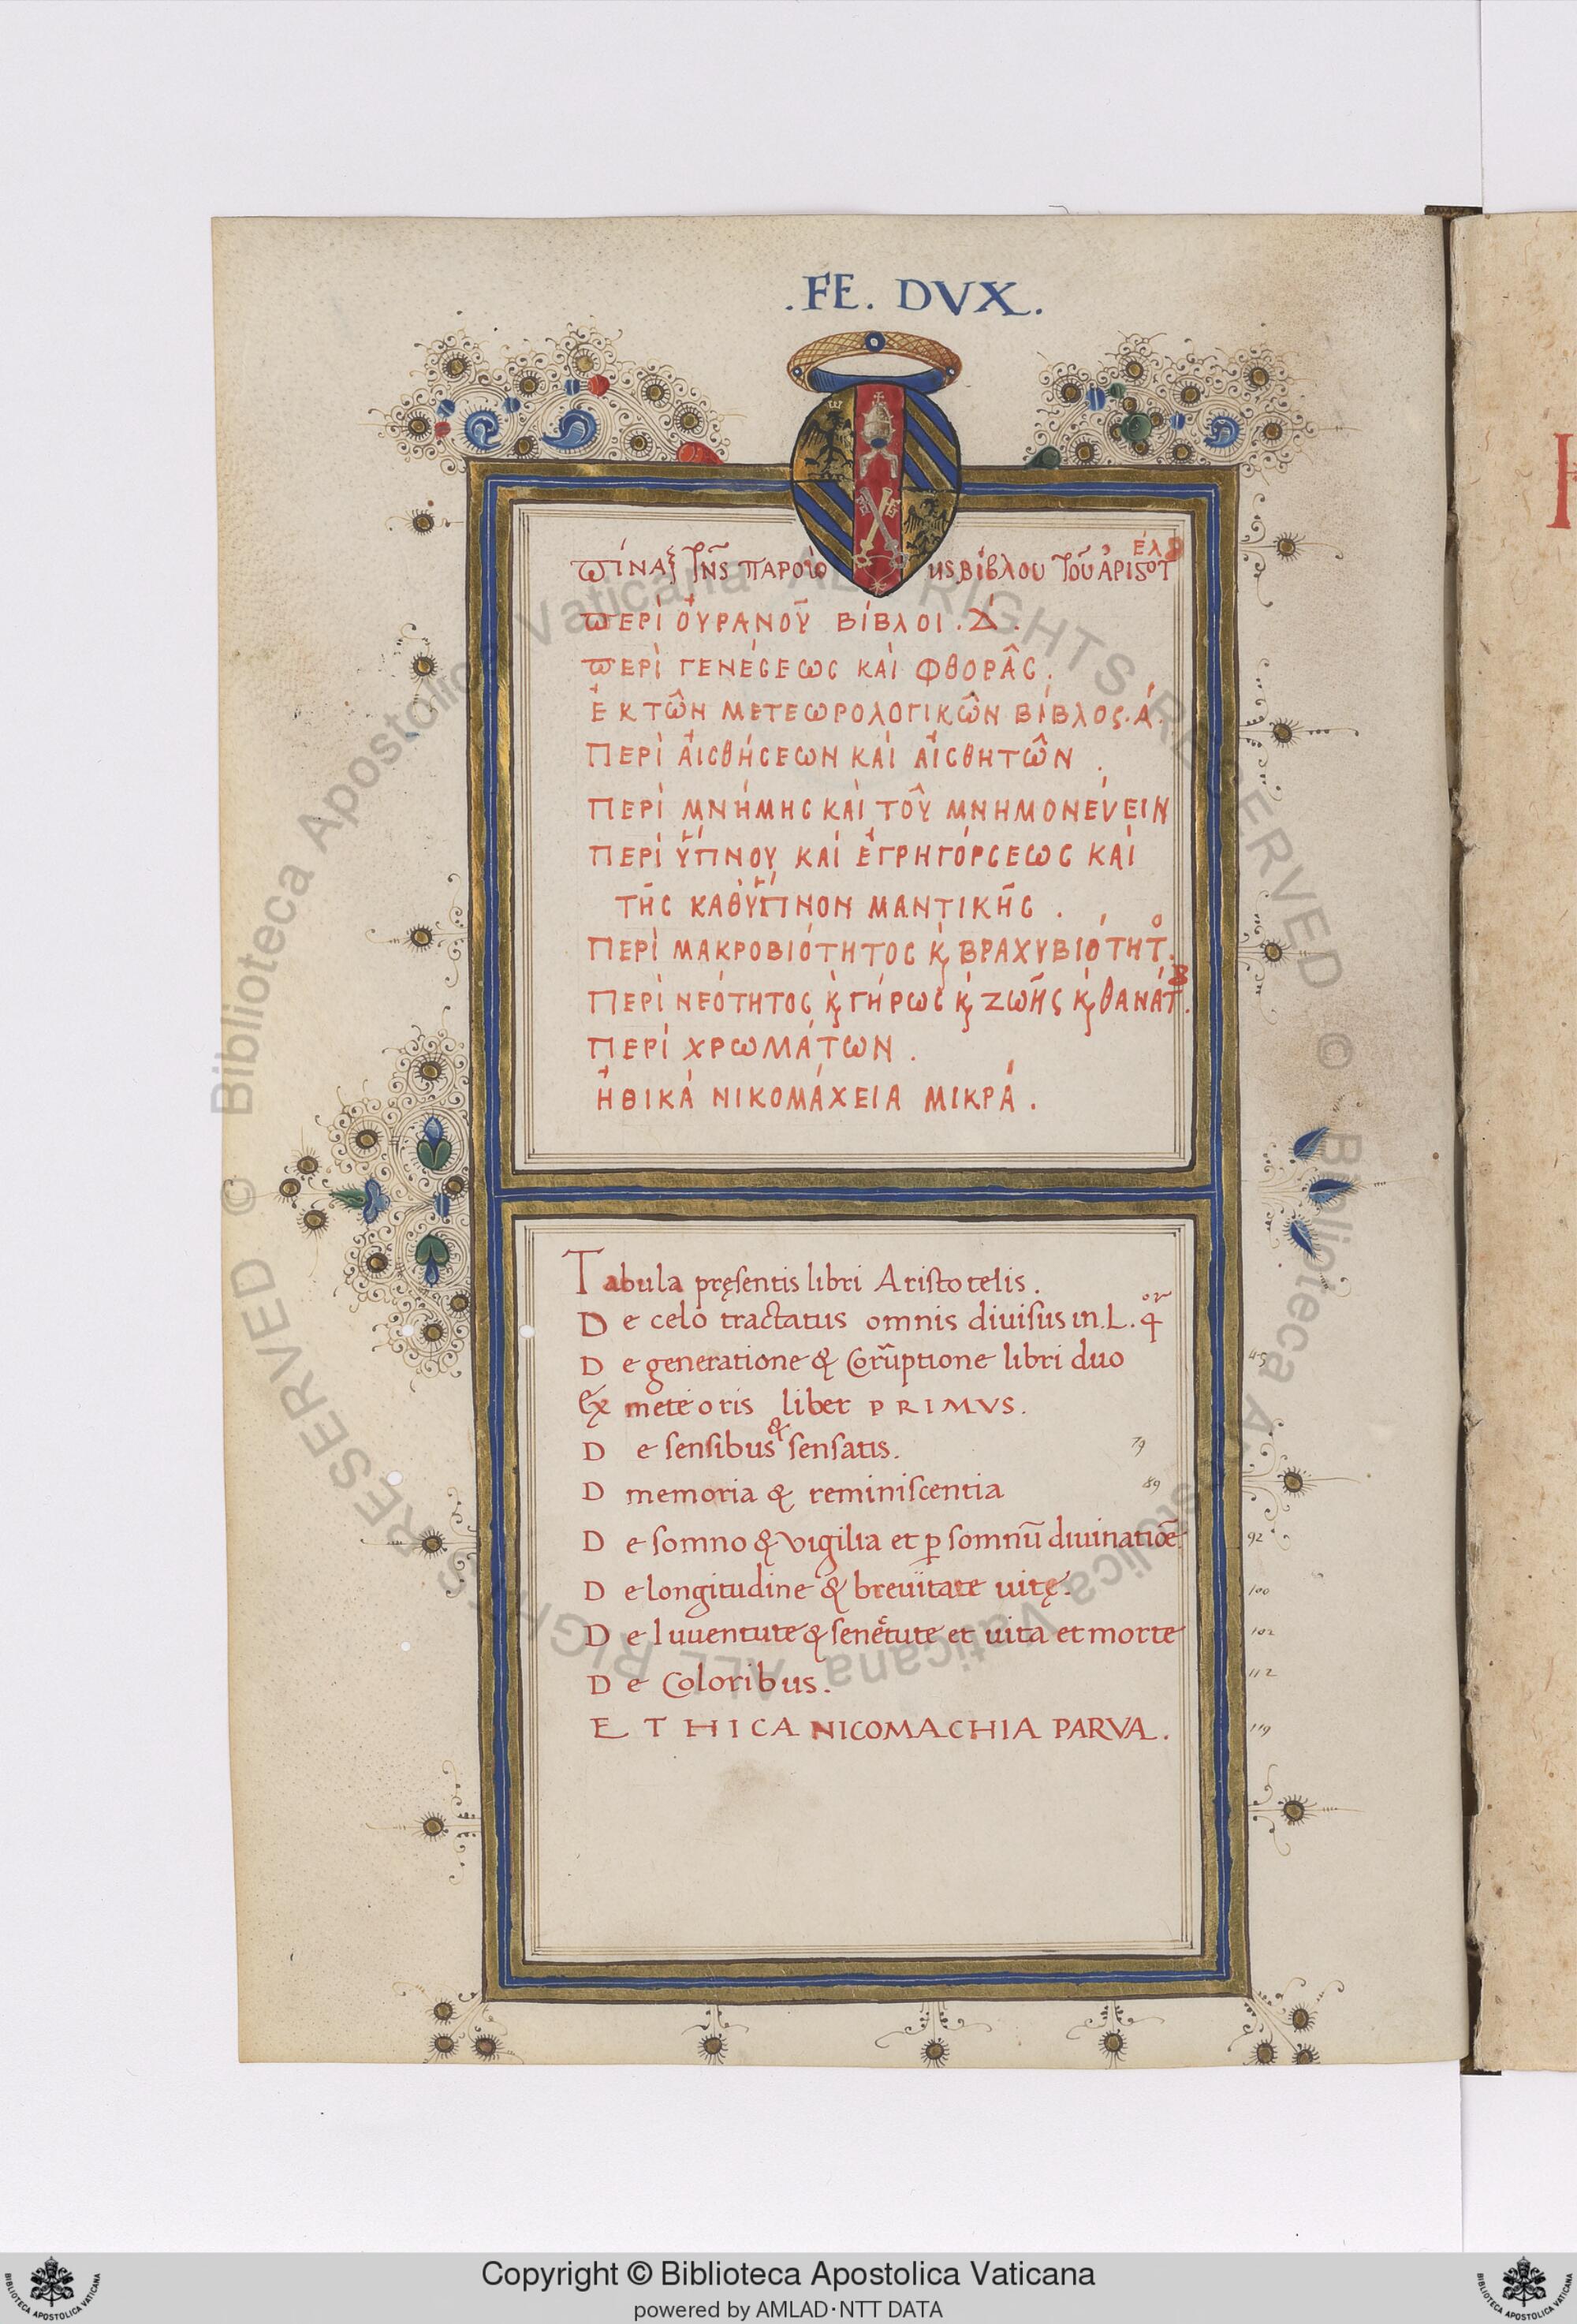 .FE. DVX.
πίναξ τῆς παρού ης βίβλου τοῦ ἀριϛοτέλους
ΠΕΡῚ ΟΥ̓ΡΑΝΟΥ͂ ΒΊΒΛΟΙ . Δ .
ΠΕΡῚ ΓΕΝΈϹΕΩϹ ΚΑῚ ΦΘΟΡΑ͂Ϲ .
ἘΚ ΤΩ͂Ν ΜΕΤΕΩΡΟΛΟΓΙΚΩ͂Ν ΒΊΒΛΟϹ . Ά .
ΠΕΡῚ ἈΙϹΘΉϹΕΩΝ ΚΑῚ ἈΙϹΘΗΤΩ͂Ν .
ΠΕΡῚ ΜΝΉΜΗϹ ΚΑῚ ΤΟΥ͂ ΜΝΗΜΟΝΕΎΕΙΝ
ΠΕΡῚ ὝΠΝΟΥ ΚΑῚ ἘΓΡΗΓΌΡϹΕΩϹ ΚΑῚ
ΤΗ͂Ϲ ΚΑΘΎΠΝΟΝ ΜΑΝΤΙΚΗ͂Ϲ .
ΠΕΡῚ ΜΑΚΡΟΒΙΌΤΗΤΟϹ ϗ ΒΡΑΧΥΒΙΌΤΗΤΟ .
ΠΕΡῚ ΝΕΌΤΗΤΟϹ ϗ ΓΉΡΩϹ ϗ ΖΩΗ͂Ϲ ϗ ΘΑΝΆΤȢ .
ΠΕΡῚ ΧΡΩΜΆΤΩΝ .
ἨΘΙΚᾺ ΝΙΚΟΜΆΧΕΙΑ ΜΙΚΡΆ .
Tabula pręsentis libri Aristotelis .
De celo tractatus omnis diuisus in . L . qͦʳ
De generatione & Coru̅ptione libri duo 45
Ex meteoris liber PRIMVS .
De sensibus & sensatis . 79
D memoria & reminiscentia 89
De somno & vigilia et ꝑ somnu̅ diuinatio̅e . 92
De longitudine & breuitate uitę . 100
De Iuuentute & senectute et uita et morte 102
De Coloribus . 112
ETHICA NICOMACHIA PARVA . 119
Copyright © Biblioteca Apostolica Vaticana
powered by AMLAD·NTT DATA
© Biblioteca Apostolica Vaticana ALL RIGHTS RESERVED © Biblioteca Apostolica Vaticana ALL RIGHTS RESERVED
BIBLIOTECA APOSTOLICA VATICANA
BIBLIOTECA APOSTOLICA VATICANA